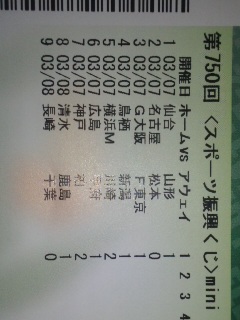 第750回 〈スポーツ振興くじ〉mini
開催日 ホームvsアウェイ 1 2 3 4
1 03/07 仙台 山形 1
2 03/07 名古屋 松本 0
3 03/07 G大阪 F東京 1
4 03/07 鳥栖 新潟 1
5 03/07 横浜M 川崎 2
6 03/07 広島
7 03/07 神戸 2
8 03/08 清水 鹿島 1
9 03/08 長崎 千葉 0